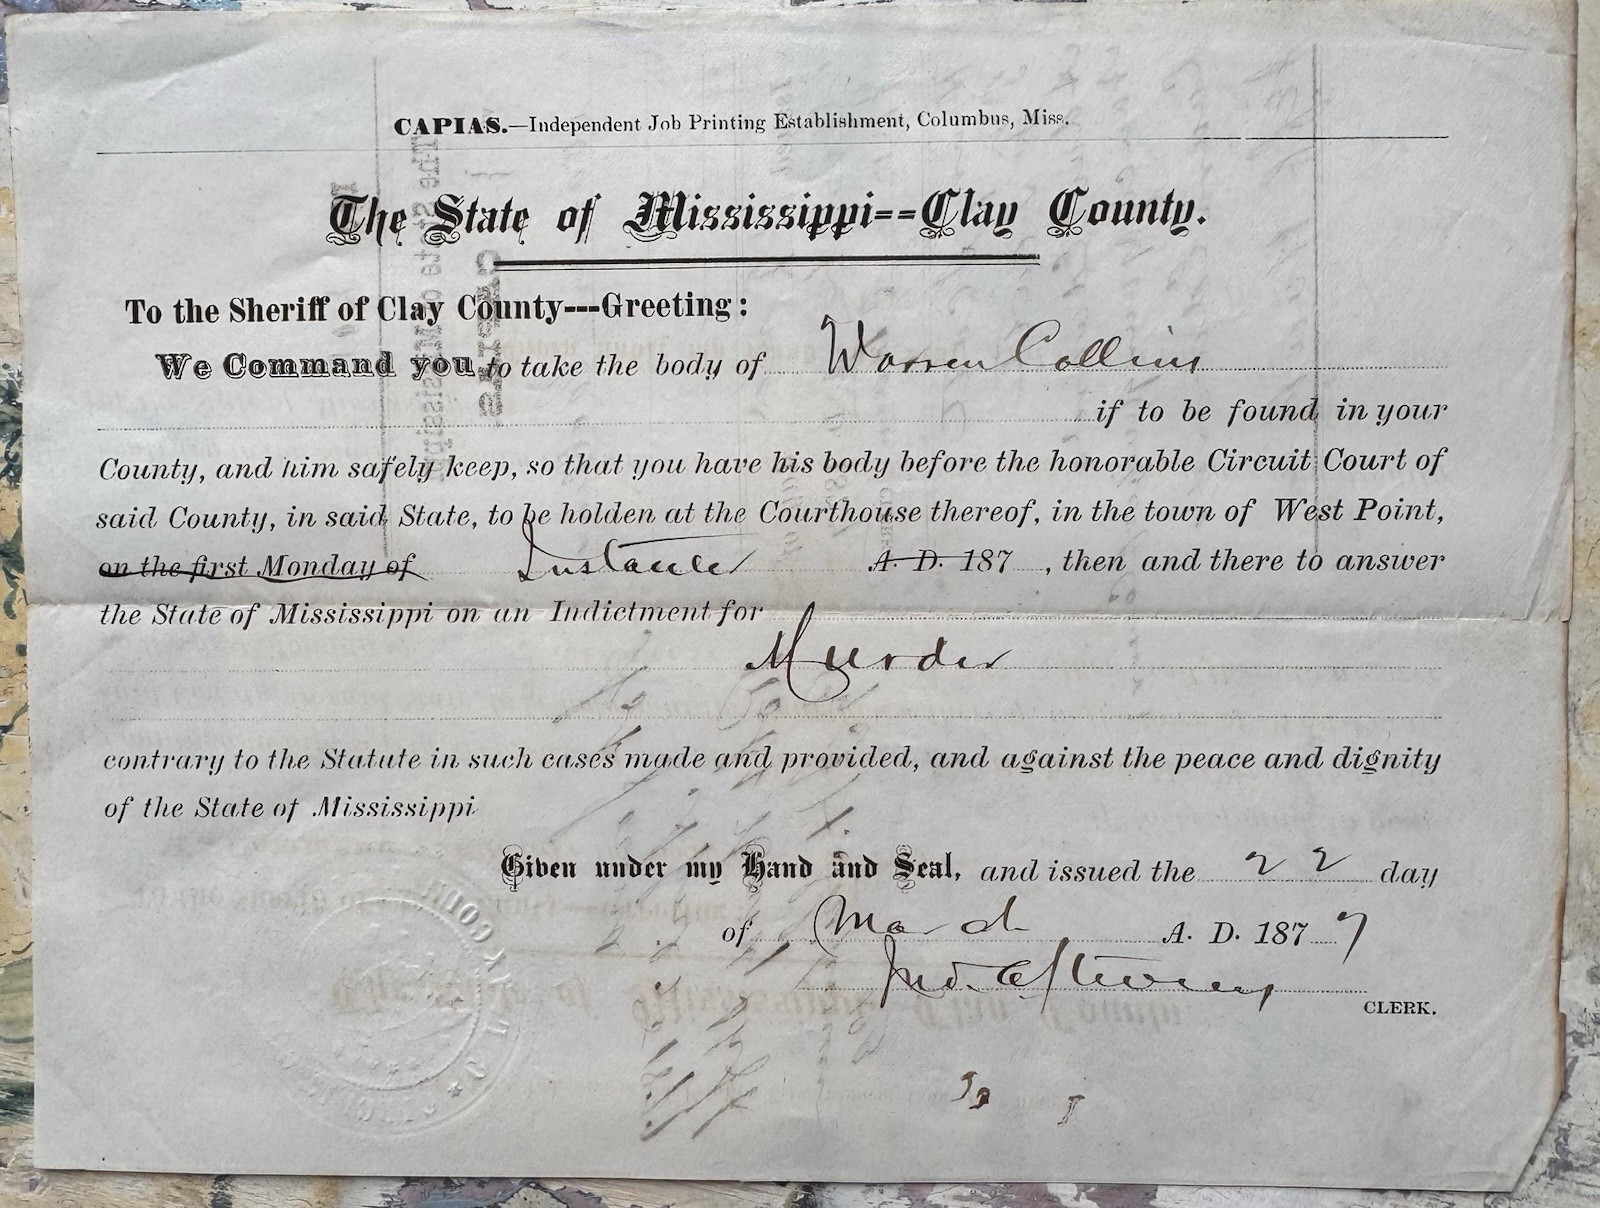 CAPIAS.—Independent Job Printing Establishment, Columbus, Miss.
The State of Mississippi==Clay County.
To the Sheriff of Clay County---Greeting:
We Command you to take the body of Warren Collins
if to be found in your
County, and him safely keep, so that you have his body before the honorable Circuit Court of
said County, in said State, to be holden at the Courthouse thereof, in the town of West Point,
on the first Monday of Instanter A. D. 187 , then and there to answer
the State of Mississippi on an Indictment for
Murder
contrary to the Statute in such cases made and provided, and against the peace and dignity
of the State of Mississippi
Given under my Hand and Seal, and issued the 22 day
of March A. D. 187 7
Jno.
CLERK.